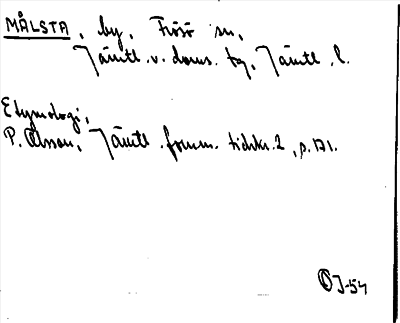 MÅLSTA, by, Frösö sn,
Jämtl. v. doms. tg, Jämtl. l.
Etymologi,
P. Olsson, Jämtl. fornm. tidskr. 2, p. 171.
J-54